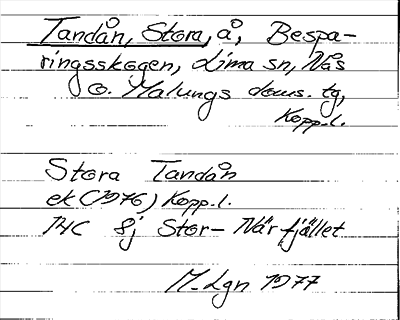 Tandån, Stora, å, Bespa-
ringsskogen, Lima sn, Nås
o. Malungs doms. tg,
Kopp.l.
Stora Tandån
ek (1976) Kopp.l.
14C 8j Stor-Närfjället
M. Lgn 1977